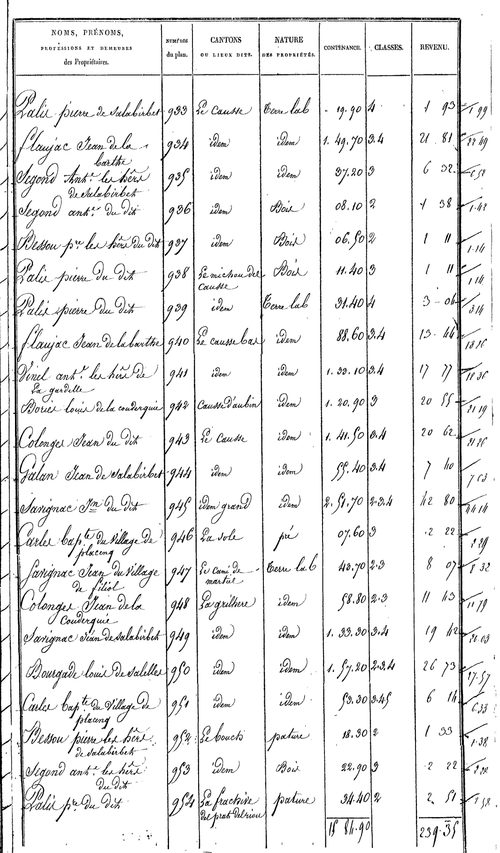 NOMS, PRÉNOMS, PROFESSIONS ET DEMEURES des Propriétaires. NUMÉROS du plan. CANTONS OU LIEUX DITS. NATURE DES PROPRIÉTÉS. CONTENANCE. CLASSES. REVENU.
Palis pierre de Salabirbet 933 Le Causse Terre lab 19.90 4 1 93 1.99
flaujac Jean de la barthe 934 idem idem 1.49.70 3.4 21 81
Segond Ant.e les hérs de Salabirbet 935 idem idem 37.20 3 6 32
Segond ant.e du dit 936 idem Bois 08.10 2 1 38 1.42
Bessou p.re les hérs du dit 937 idem Bois 06.50 2 1 11 1.14
Palis pierre du dit 938 Le michou del Causse Bois 11.40 3 1 11 1.14
Palis pierre du dit 939 idem Terre lab 31.40 4 3 06 3.14
flaujac Jean de la barthe 940 Le causse bas idem 88.60 3.4 13 44
Vinel ant.e les hérs de La gardelle 941 idem idem 1.33.10 3.4 17 77
Bories louis de la couderquie 942 Causse d'aubin idem 1.20.90 3 20 55
Colonges Jean du dit 943 Le Causse idem 1.41.50 3.4 20 62
Galan Jean de Salabirbet 944 idem idem 55.40 3.4 7 40
Savignac Jn du dit 945 idem grand idem 2.51.70 2.3.4 42 80
Carles Bap.te du Village de placenq 946 La sole pré 07.60 3 2 22
Savignac Jean du Village de filiol 947 Le Cami de martiel Terre lab 43.70 2.3 8 07 8.32
Colonges Jean de la Couderquie 948 La grilhere idem 58.80 2.3 11 43
Savignac Jean de Salabirbet 949 idem idem 1.33.30 3.4 19 42
Bourgade louis de Salelles 950 idem idem 1.57.20 2.3.4 26 73 27.57
Carles Bap.te du Village de placenq 951 idem idem 53.30 3.45 6 14 6.33
Bessou pierre les hérs de Salabirbet 952 Le bouch pature 18.30 2 1 33 1.38
Segond ant.e les hérs du dit 953 idem Bois 22.90 3 2 22
Palis p.re du dit 954 La frachive del prat delriou pature 34.40 2 2 51
15 84.90 239.35